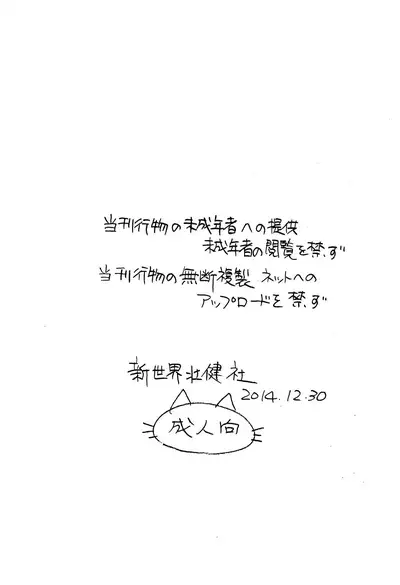 当刊行物の未成年者への提供
未成年者の閲覧を禁ず
当刊行物の無断複製 ネットへの
アップロードを禁ず
新世界壮健社
2014.12.30
成人向